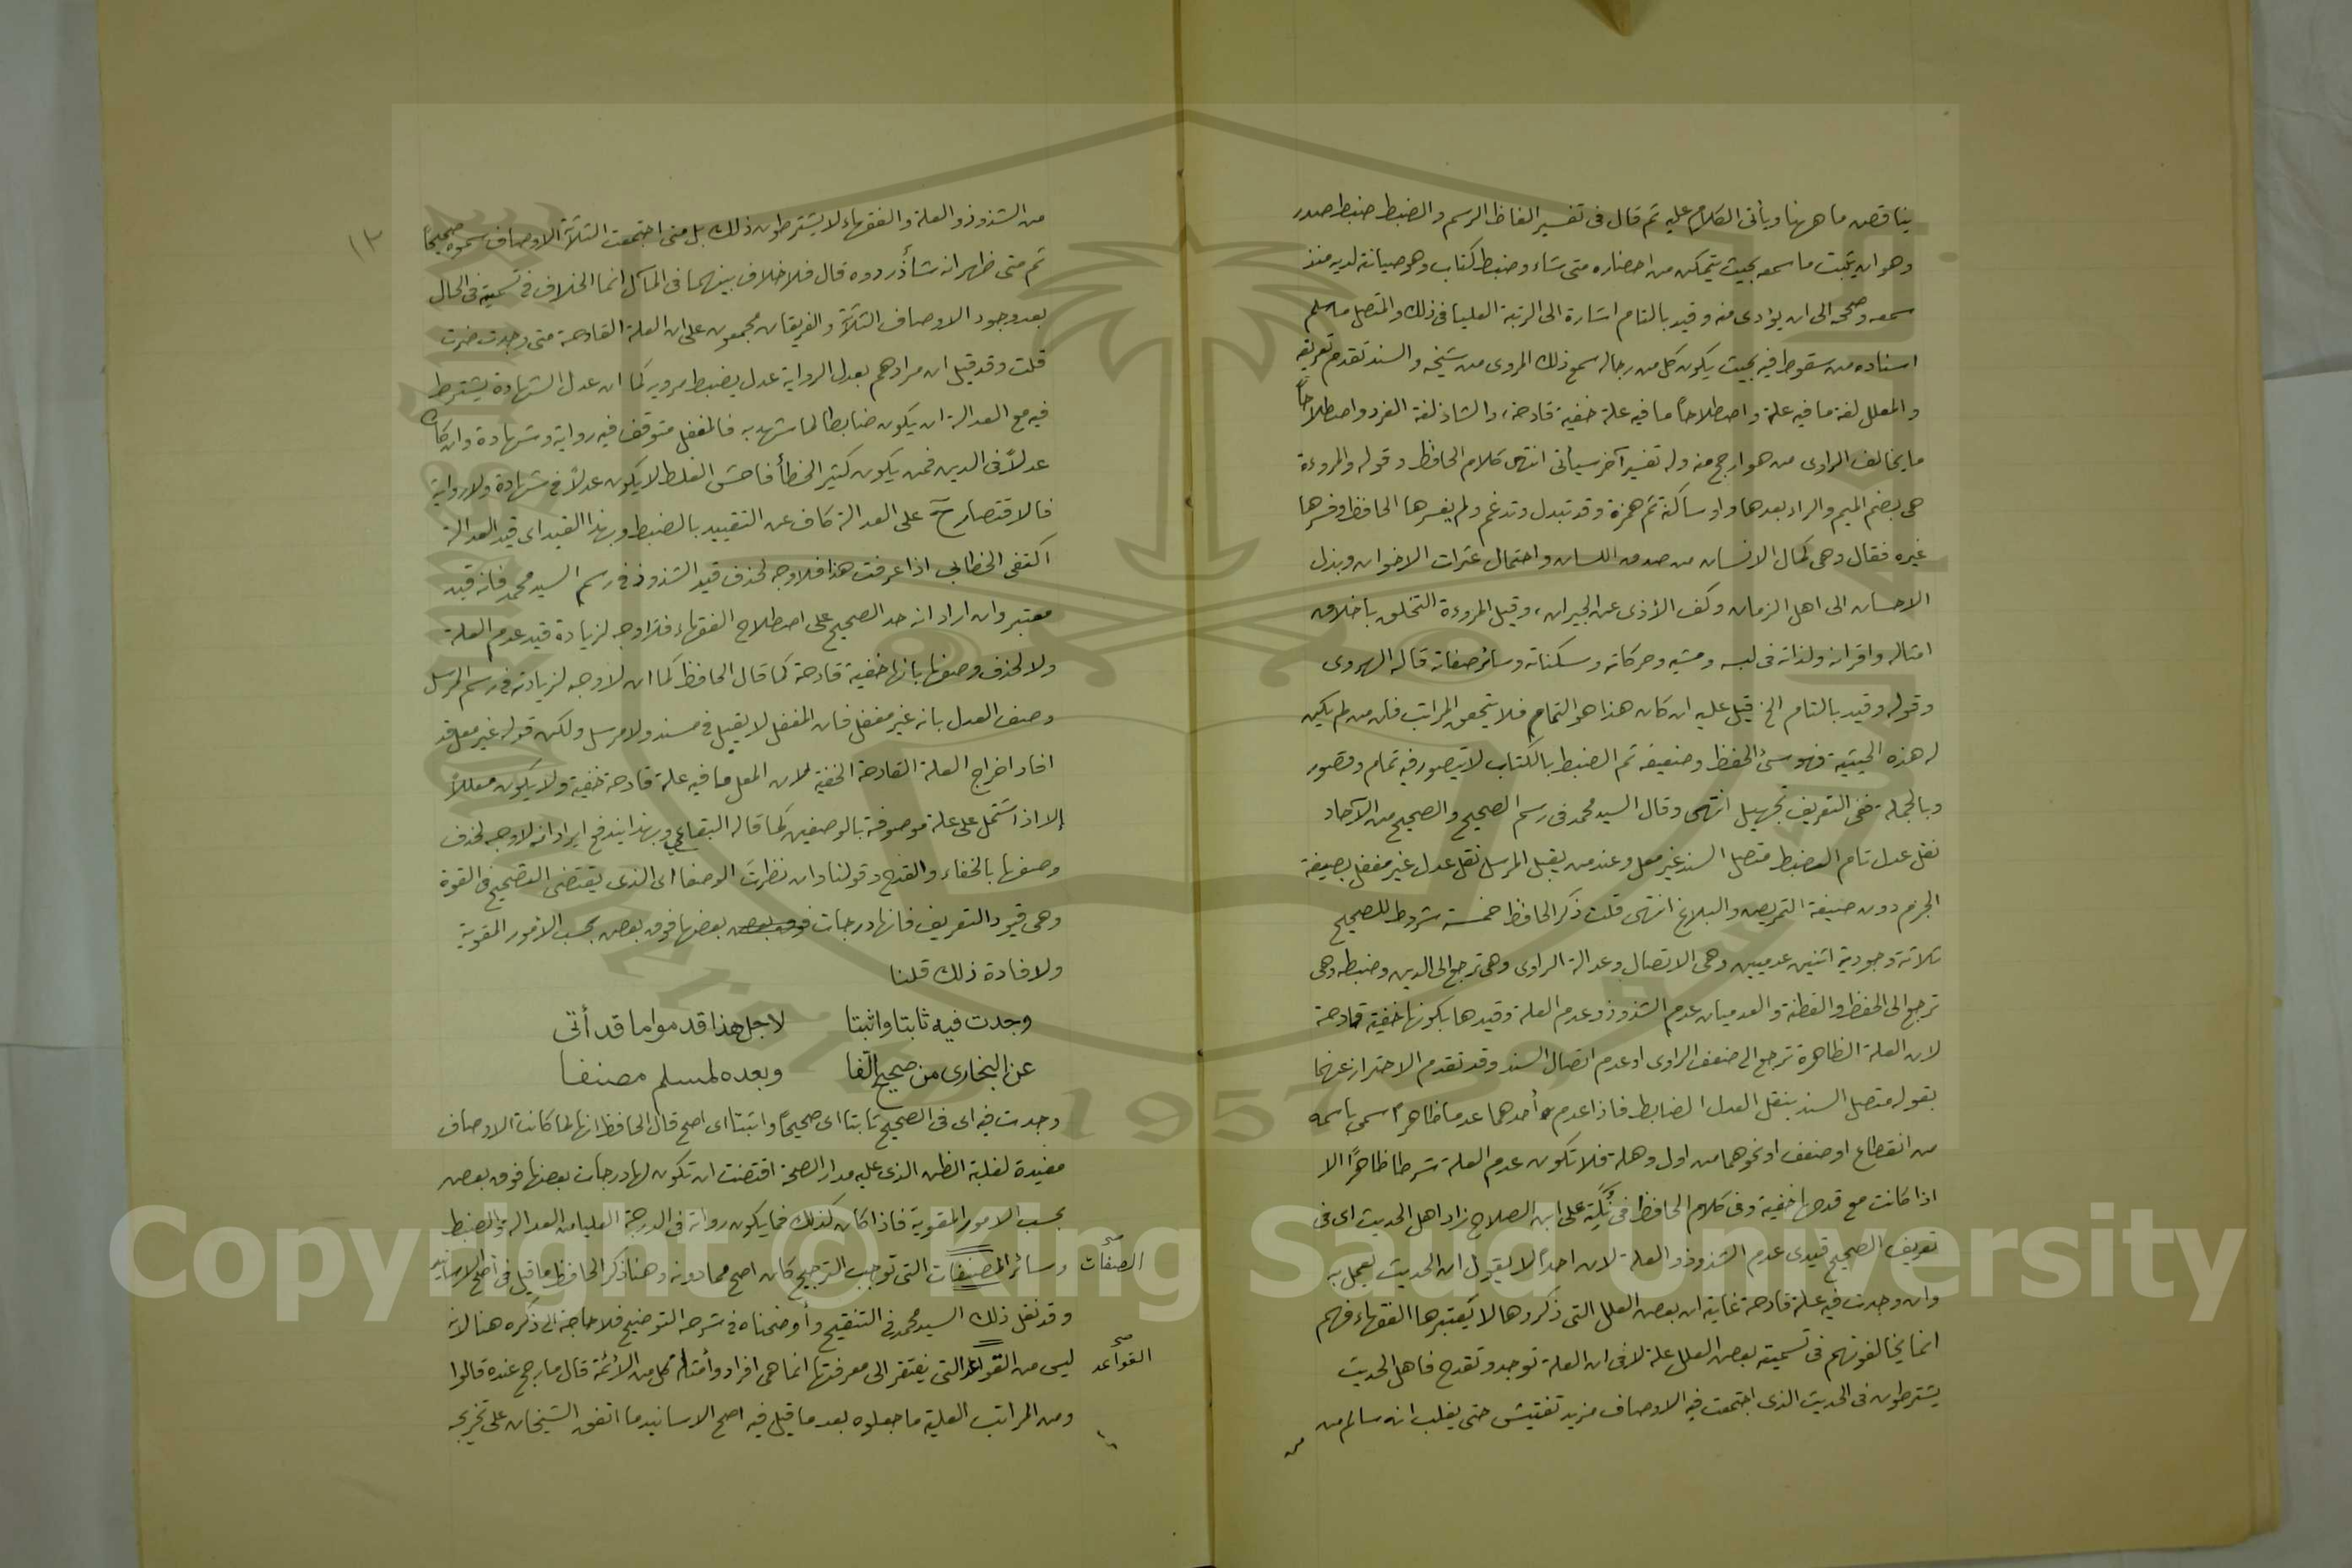 يناقض ما ههنا ويأتى الكلام عليه ثم قال فى تفسير الفاظ الرسم والضبط ضبط صدر
وهو ان يثبت ما سمعه بحيث يتمكن من احضاره متى شاء وضبط كتاب وهو صيانته لديه منذ
سمعه وصححه الى ان يؤدى منه وقيد بالتام اشارة الى الرتبة العليا فى ذلك والمتصل ما سلم
اسناده من سقوط فيه بحيث يكون كل من رجاله سمع ذلك المروى من شيخه والسند تقدم تعريفه
والمعلل لغة ما فيه علة واصطلاحاً ما فيه علة خفية قادحة، والشاذ لغة الفرد واصطلاحاً
ما يخالف الراوى من هو ارجح منه وله تفسير آخر سيأتى انتهى كلام الحافظ وقوله والمروءة
هى بضم الميم والراء بعدها واو ساكنة ثم همزة وقد تبدل وتدغم ولم يفسرها الحافظ وفسرها
غيره فقال وهى كمال الانسان من صدق اللسان واحتمال عثرات الاخوان وبذل
الاحسان الى اهل الزمان وكف الأذى عن الجيران، وقيل المروءة التخلق باخلاق
امثاله واقرانه ولداته فى لبسه ومشيه وحركاته وسكناته وسائر صفاته قاله الهروى
وقوله وقيد بالتام الخ قيل عليه ان كان هذا هو التمام فلا يتحقق المراتب فان من لم يكن
له هذه الحيثية فهو سئ الحفظ وضعيفه ثم الضبط بالكتاب لا يتصور فيه تمام وقصور
وبالجملة ففى التعريف تجهيل انتهى وقال السيد محمد فى رسم الصحيح والصحيح من الآحاد
نقل عدل تام الضبط متصل السند غير معل وعند من يقبل المرسل نقل عدل غير مغفل بصيغة
الجزم دون صيغة التمريض والبلاغ انتهى قلت ذكر الحافظ خمسة شروط للصحيح
ثلاثة وجودية اثنين عدميين وهى الاتصال وعدالة الراوى وهى ترجع الى الدين وضبطه وهى
ترجع الى الحفظ والفطنة والعدميان عدم الشذوذ وعدم العلة وقيدها بكونها خفية قادحة
لان العلة الظاهرة ترجع الى ضعف الراوى او عدم اتصال السند وقد تقدم الاحتراز عنهما
بقوله متصل السند بنقل العدل الضابط فاذا عدم أحدهما عدما ظاهراً سمي باسمه
من انقطاع او ضعف او نحوهما من اول وهلة فلا تكون عدم العلة شرطا ظاهراً الا
اذا كانت مع قدحها خفية وفى كلام الحافظ فى نكته على ابن الصلاح زاد اهل الحديث اى فى
تعريف الصحيح قيدى عدم الشذوذ والعلة لان احداً لا يقول ان الحديث يعمل به
وان وجدت فيه علة قادحة غايته ان بعض العلل التى ذكروها لا يعتبرها الفقهاء فهم
انما يخالفونهم فى تسمية بعض العلل علة لا فى ان العلة توجد وتقدح فاهل الحديث
يشترطون فى الحديث الذى اجتمعت فيه الاوصاف مزيد تفتيش حتى يغلب انه سالم من
١٣
من الشذوذ والعلة والفقهاء لا يشترطون ذلك بل متى اجتمعت الثلاثة الاوصاف سموه صحيحاً
ثم متى ظهر انه شاذ ردوه قال فلا خلاف بينهما فى المآل انما الخلاف فى تسميته فى الحال
بعد وجود الاوصاف الثلاثة والفريقان مجمعون على ان العلة القادحة متى وجدت ضرت
قلت وقد قيل ان مرادهم بعدل الرواية عدل يضبط مرويه كما ان عدل الشهادة يشترط
فيه مع العدالة ان يكون ضابطا لما شهد به فالمغفل متوقف فيه رواية وشهادة وان كان
عدلاً فى الدين فمن يكون كثير الخطأ فاحش الغلط لا يكون عدلاً فى شهادة ولا رواية
فالاقتصار ح على العدالة كاف عن التقييد بالضبط وبهذا القيد اى قيد العدالة
اكتفى الخطابى اذا عرفت هذا فلا وجه لحذف قيد الشذوذ فى رسم السيد محمد فانه قيد
معتبر وان اراد انه حد الصحيح على اصطلاح الفقهاء فلا وجه لزيادة قيد عدم العلة
ولا لحذف وصفها بانها خفية قادحة كما قال الحافظ كما ان لا وجه لزيادته فى رسم المرسل
وصف العدل بانه غير مغفل فان المغفل لا يقبل فى مسند ولا مرسل ولكن قوله غير معل قد
افاد اخراج العلة القادحة الخفية لان المعل ما فيه علة قادحة خفية ولا يكون معللاً
إلا اذ اشتمل على علة موصوفة بالوصفين كما قاله البقاعي وبهذا يندفع ايراد انه لا وجه لحذف
وصفها بالخفاء والقدح وقولنا وان نظرت الوصفا اى الذى يقتضى التصحيح فى القوة
وهى قيود التعريف فانها درجات فوق بعض بعضها فوق بعض بحسب الامور المقوية
ولافادة ذلك قلنا
وجدت فيه ثابتا واثبتا لاجل هذا قدموا ما قد أتى
عن البخارى من صحيح الّفا وبعده لمسلم مصنفا
وجدت فيه اى فى الصحيح ثابتا اى صحيحاً واثبتا اى اصح قال الحافظ انها لما كانت الاوصاف
مفيدة لغلبة الظن الذى عليه مدار الصحة اقتضت ان تكون لها درجات بعضها فوق بعض
بحسب الامور المقوية فاذا كان كذلك فما يكون رواته فى الدرجة العليا من العدالة والضبط
وسائر المصنفات التى توجب الترجيح كان اصح مما دونه وهنا ذكر الحافظ ما قيل فى أصح الاسانيد
صح الصفات
وقد نقل ذلك السيد محمد فى التنقيح وأوضحناه فى شرحه التوضيح فلا حاجة الى ذكره هنا لانه
ليس من القواعد التى يفتقر الى معرفتها انما هى افراد وأمثلة كل من الأئمة قال ما رجح عنده قالوا
صح القواعد
ومن المراتب العلية ما جعلوه بعد ما قيل فيه اصح الاسانيد ما اتفق الشيخان على تخريجه
Copyright © King Saud University
1957